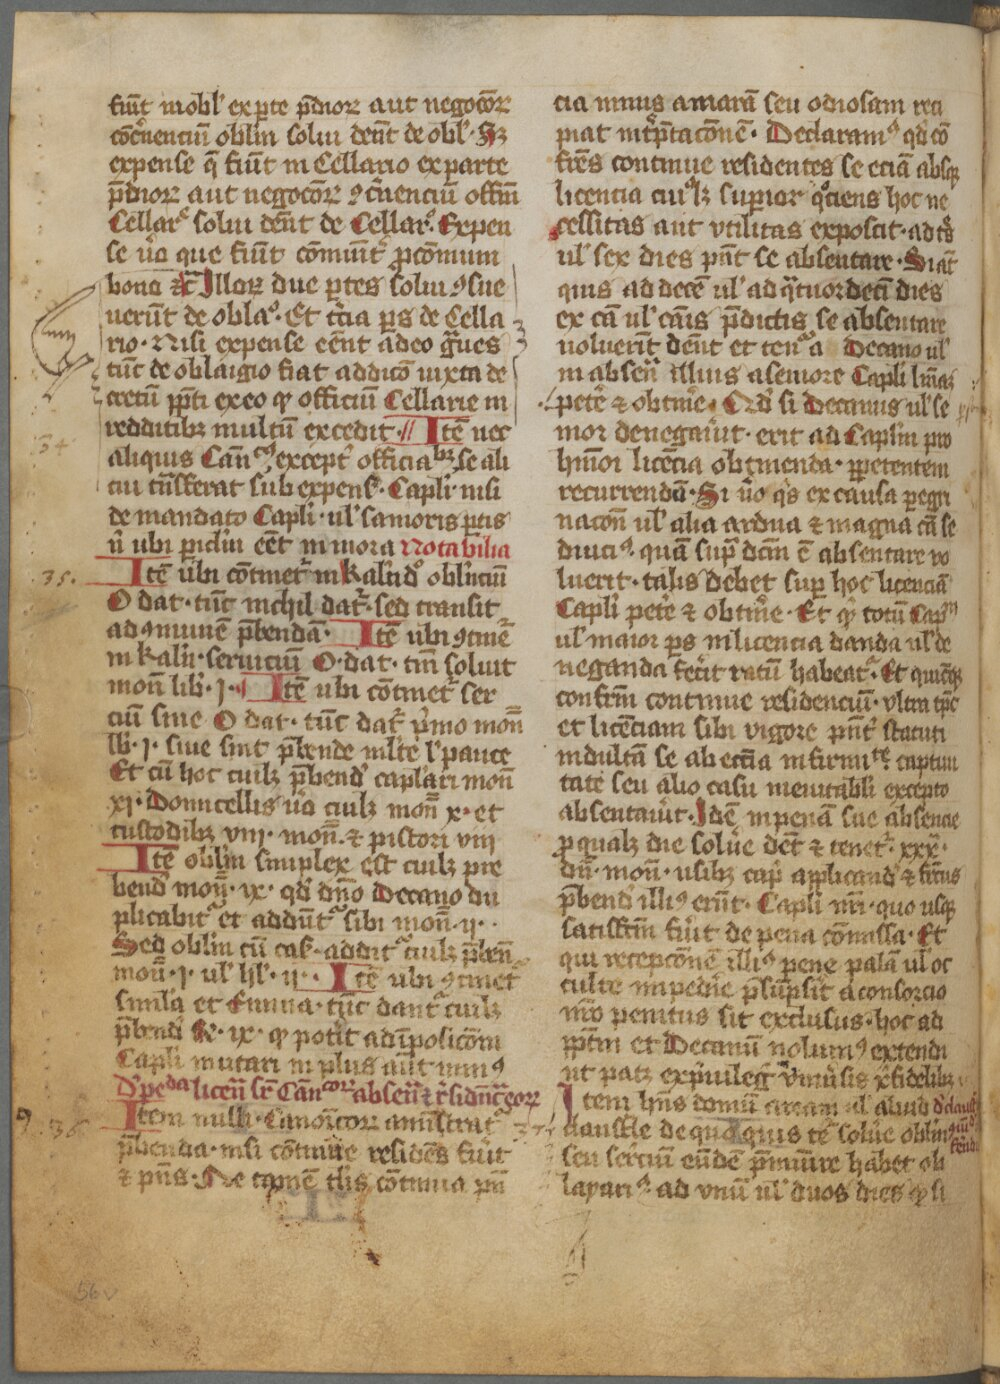 fiūt in obl' ex pte p̄dnoꝝ aut negocōꝝ
cōueniencium oblin solui dēnt de obl'. Sꝫ
expense q̄ fiūt in Cellario ex parte
p̄dnoꝝ aut negocōꝝ ꝯueniencium offm̄
Cellar̄ solui dēnt de Cellar̄. Expen
se v̄o que fiūt cōmūnt' ꝓ cōmum
bono ⁊c Illoꝝ due ptes solui ꝯsue
uerūt de obla°. Et t'cia ps de Cella
rio. Nisi expense eēnt adeo gͣues
tūc de oblaigio fiat addicō iuxta de
cretū pp̄ti ex eo qꝫ officiū Cellarie in
redditibꝫ multū excedit. Itē nec
aliquis Cān except' officiabꝫ se ali
cui tn̄sferat sub expens'. Capl'i nisi
de mandato Capl'i. ul' sanioris ptis
n̄ ubi pidm eēt in mora Notabilia
35. Itē ubi cōtinet' in Kalnd' oblnciū
O dat. tūc nichil dat'. sed transit
ad ꝯmunē p̄bendā. Itē ubi ꝯtinet'
in Kaln'. seruiciū O. dat. tm̄ soluit
mon̄ lib'. j. Itē ubi cōtinet' ser
ciū sine O dat. tūc dat' p'mo mon̄
lb'. j. siue sint p̄bende ml'te l' pauce
Et cū hoc cuilꝫ p̄bend' capl'ari mon̄
xj. Domicellis v̄o cuilꝫ mon̄ x. et
custodibꝫ viij. mon̄. ⁊ pistori viij
Itē oblin simplex est cuilꝫ pre
bend' mon̄. ix. qd' dn̄o Decano du
plicabit' et addūt' sibi mon̄. ij.
Sed oblin cū cas'. addit' cuilꝫ p̄ben̄
mon̄. j. ul' hl'. ij. Itē ubi ꝯtinet'
simila et Emina. tūc dant' cuilꝫ
p̄bend' . ix. qꝫ potit ad īposicōm
Capl'i mutari in plus aut min9
D' pe licen̄ Cān absen̄ ⁊
36. Item nulli. Canoīcoꝝ amīstrat'
p̄benda. nisi cōtinue residēs fūit
⁊ pn̄s. Ne tamē tl'is cōtinua p̄n
cia nimis amarā seu odiosam reci
piat int'p̄tacōnē. Declaram9 qd' cō
fr̄es continue residentes se eciā absqꝫ
licencia cui9lꝫ supior qͦciens hoc ne
cessitas aut vtilitas exposcit. ad
ul' sex dies pn̄t se absentare. Si at'
quis ad decē ul' ad qͣtuordeci dies
ex cā ul' cāis p̄dictis se absentare
uoluerit dēnt et ten a Decano ul'
in absen̄ illius a seniore Capl'i
petē ⁊ obtinē. Qd' si Decanus ul' se
nior denegau'it. erit ad Capl'm pro
hm̄oi licēcia obtinenda. p petentem
recurrendū. Si v̄o qͥs ex causa pegri
nacōn ul' alia ardua ⁊ magna cā se
diuci9. quā supͣ dcm̄ ē absentare vo
luerit. talis debet sup hoc licenciā
Capl'i petē ⁊ obtinē. Et qꝫ totū Cap
ul' maior ps in licencia danda ul' de
neganda fec'it ratū habeat'. Et quicūqꝫ
confrm̄ continue residenciū. vltra tp̄s
et licēciam sibi vigore p̄nt' statuti
indultā se ab ecc'ia infirmi captiui
tate seu alio casu ineuitabl'i excepto
absentau'it. Idē in penā sue absencie
ꝓ qualꝫ die solūe dēt ⁊ tenet'. xxx.
dn̄. mon̄. usibꝫ cap' applicand' ⁊ fr̄us
p̄bend' illi9 erūt. Capl'i nr̄i. quo usqꝫ
satisfcm̄ fūit de pena cōmissa. Et
qui recepcōnē illi9 pene palā ul' oc
culte impedire p̄sūpsit a consorcio
nr̄o penitus sit exclusus. hoc ad
pp̄tm et Decanū nolum9 extendi
ut patꝫ ex p̄uileg' vniu'sis xp̄ifidelibꝫ
Item hn̄s domū ul' aliud
claustle de quo quis tē' solūe oblin
seu sērciū eūdē p̄mūire habet ob
layari9 ad vnū ul' duos dies qꝫ si
56v